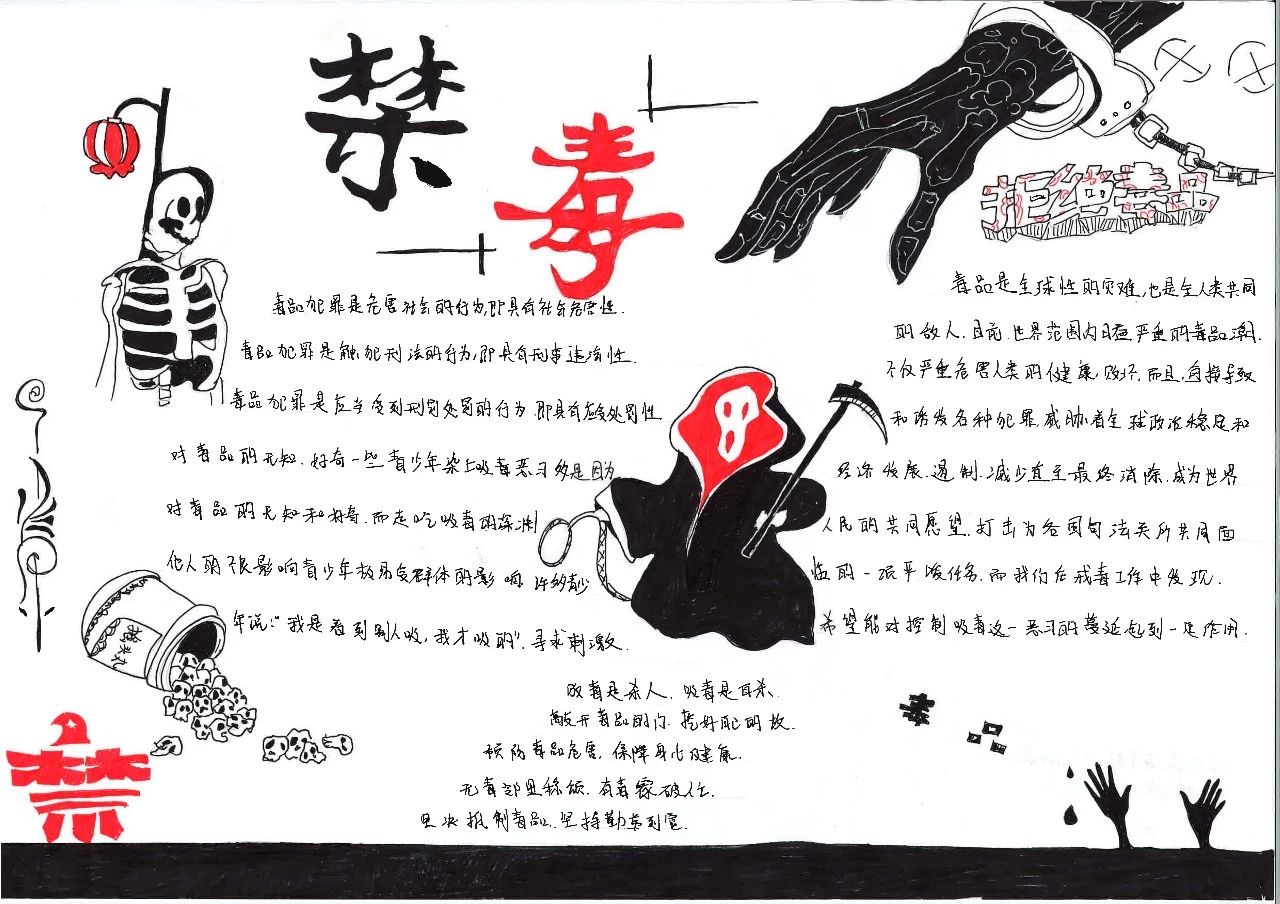 禁
毒
拒绝毒品
毒品犯罪是危害社会的行为,即具有社会危害性.
毒品犯罪是触犯刑法的行为,即具有刑事违法性.
毒品犯罪是应当受到刑罚处罚的行为.即具有应受处罚性
对毒品的无知.好奇一些青少年染上吸毒恶习多是因为
对毒品的无知和好奇.而走吃吸毒的深渊
他人的不良影响青少年极易受群体的影响.许多青少
年说:“我是看到别人吸,我才吸的”.寻求刺激.
毒品是全球性的灾难,也是全人类共同
的敌人.目前.世界范围内日益严重的毒品潮.
不仅严重危害人类的健康,败坏.而且.直接导致
和诱发各种犯罪.威胁着全球政治稳定和
经济发展.遏制.减少直至最终消除.成为世界
人民的共同愿望.打击为各国司法关所共同面
临的一项严峻任务.而我们在戒毒工作中发现.
希望能对控制吸毒这一恶习的蔓延起到一定作用.
吸毒是杀人.吸毒是自杀.
敞开毒品的门.挖好死的坟.
预防毒品危害.保障身心健康.
无毒邻里称颂.有毒家破人亡.
坚决抵制毒品.坚持勤劳到富.
毒
品
禁